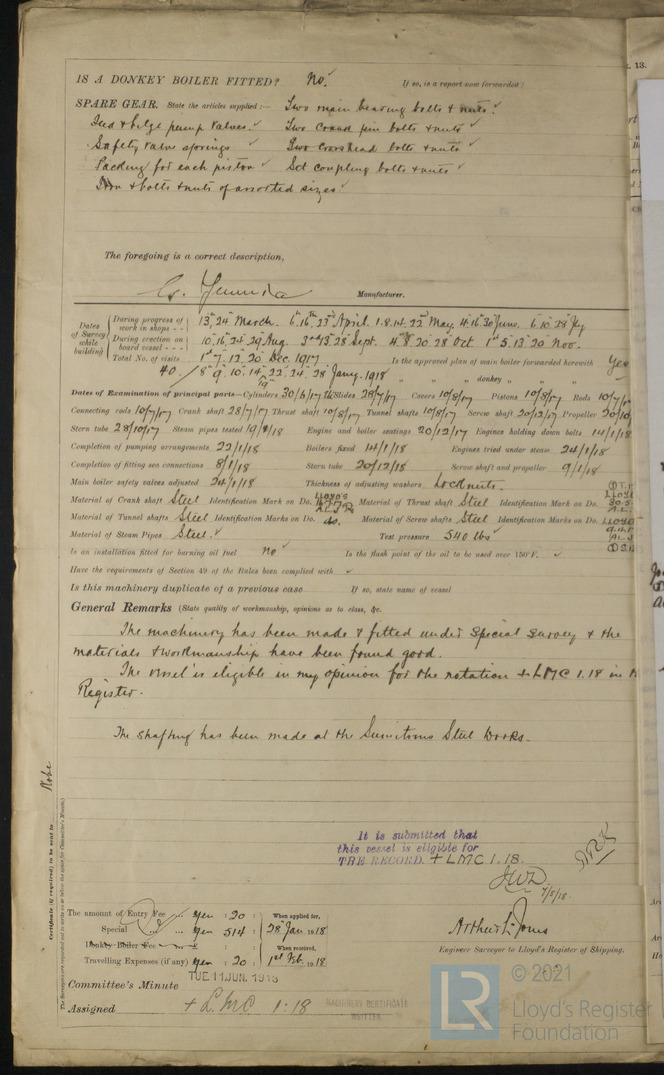 IS A DONKEY BOILER FITTED? No. If so, is a report now forwarded?
SPARE GEAR. State the articles supplied :— Two main bearing bolts & nuts.
Feed & bilge pump valves. Two crank pin bolts & nuts
Safety valve springs Two crosshead bolts & nuts
Packing for each piston Set coupling bolts & nuts
Iron & bolts & nuts of assorted sizes
The foregoing is a correct description,
Manufacturer.
Dates of Survey while building
During progress of work in shops - - 13, 24 March. 6. 16th 23rd April. 1. 8. 14. 22nd May. 4. 16. 30 June. 6. 10. 28 Jly
During erection on board vessel - - - 10, 16, 24, 29 Aug. 3rd 13. 28 Sept. 4. 8. 20. 28 Oct. 1st 5. 13. 20 Nov.
Total No. of visits 1st 7. 13. 20 Dec. 1917 Is the approved plan of main boiler forwarded herewith Yes
40 / 8 9. 10. 14. 22. 24. 28 Jany. 1918 " " " donkey " "
Dates of Examination of principal parts—Cylinders 30/6/17 Slides 28/7/17 Covers 10/8/17 Pistons 10/8/17 Rods 10/7/17
Connecting rods 10/7/17 Crank shaft 28/7/17 Thrust shaft 10/8/17 Tunnel shafts 10/8/17 Screw shaft 20/12/17 Propeller 20/10
Stern tube 28/10/17 Steam pipes tested 19/1/18 Engine and boiler seatings 20/12/17 Engines holding down bolts 14/1/18
Completion of pumping arrangements 22/1/18 Boilers fixed 14/1/18 Engines tried under steam 24/1/18
Completion of fitting sea connections 8/1/18 Stern tube 20/12/18 Screw shaft and propeller 9/1/18
Main boiler safety valves adjusted 24/1/18 Thickness of adjusting washers Locknuts.
Material of Crank shaft Steel Identification Mark on Do. LLOYD'S Material of Thrust shaft Steel Identification Mark on Do.
Material of Tunnel shafts Steel Identification Marks on Do. do. Material of Screw shafts Steel Identification Marks on Do.
Material of Steam Pipes Steel. Test pressure 540 lbs
Is an installation fitted for burning oil fuel No Is the flash point of the oil to be used over 150°F.
Have the requirements of Section 49 of the Rules been complied with
Is this machinery duplicate of a previous case If so, state name of vessel
General Remarks (State quality of workmanship, opinions as to class, &c.
The machinery has been made & fitted under special survey & the
materials & workmanship have been found good.
The vessel is eligible in my opinion for the notation + LMC 1.18 in
Register.
The shafting has been made at the Sumitomo Steel Works.
Certificate (if required) to be sent to Kobe
The Surveyors are requested not to write on or below the space for Committee's Minute.
It is submitted that
this vessel is eligible for
THE RECORD. + LMC 1.18.
7/5/18.
The amount of Entry Fee ... Yen : 20 : When applied for,
Special ... Yen 514 : 28 Jan 1918
Donkey Boiler Fee ... £ : : When received,
Travelling Expenses (if any) Yen : 20 : 1st Feb. 1918
Arthur L. Jones
Engineer Surveyor to Lloyd's Register of Shipping.
TUE 11 JUN. 1918
Committee's Minute
Assigned + L.MC 1.18
MACHINERY CERTIFICATE
WRITTEN
LR
© 2021
Lloyd's Register
Foundation